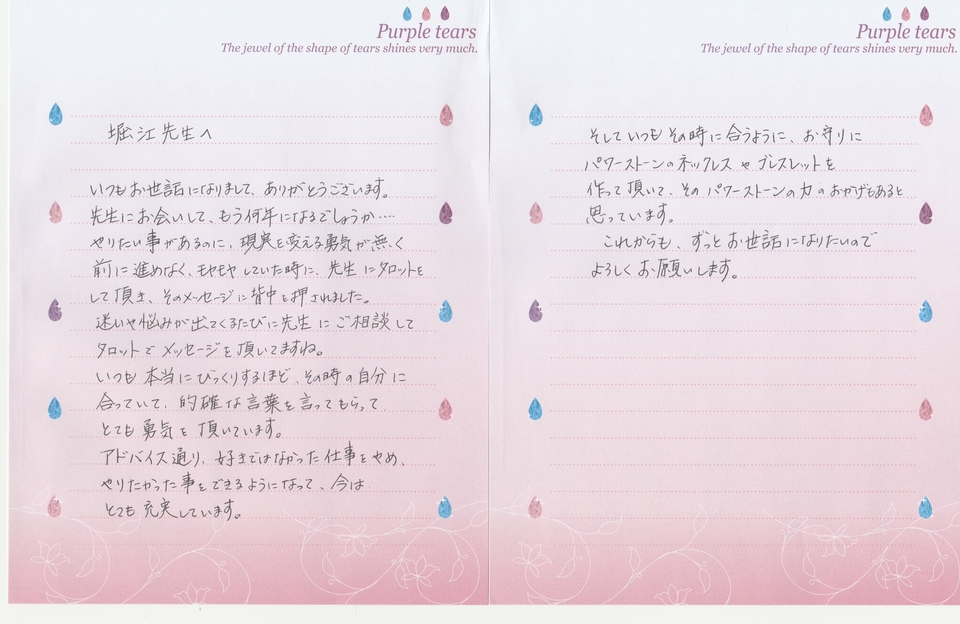 Purple tears
The jewel of the shape of tears shines very much.
堀江先生へ
いつもお世話になりまして、ありがとうございます。
先生にお会いして、もう何年になるでしょうか…
やりたい事があるのに、現実を変える勇気が無く
前に進めなく、モヤモヤしていた時に、先生にタロットを
して頂き、そのメッセージに背中を押されました。
迷いや悩みが出てくるたびに先生にご相談して
タロットでメッセージを頂いてますね。
いつも本当にびっくりするほど、その時の自分に
合っていて、的確な言葉を言ってもらって
とても勇気を頂いています。
アドバイス通り、好きではなかった仕事をやめ、
やりたかった事をできるようになって、今は
とても充実しています。
Purple tears
The jewel of the shape of tears shines very much.
そしていつもその時に合うように、お守りに
パワーストーンのネックレスやブレスレットを
作って頂いて、そのパワーストーンの力のおかげもあると
思っています。
これからも、ずっとお世話になりたいので
よろしくお願いします。